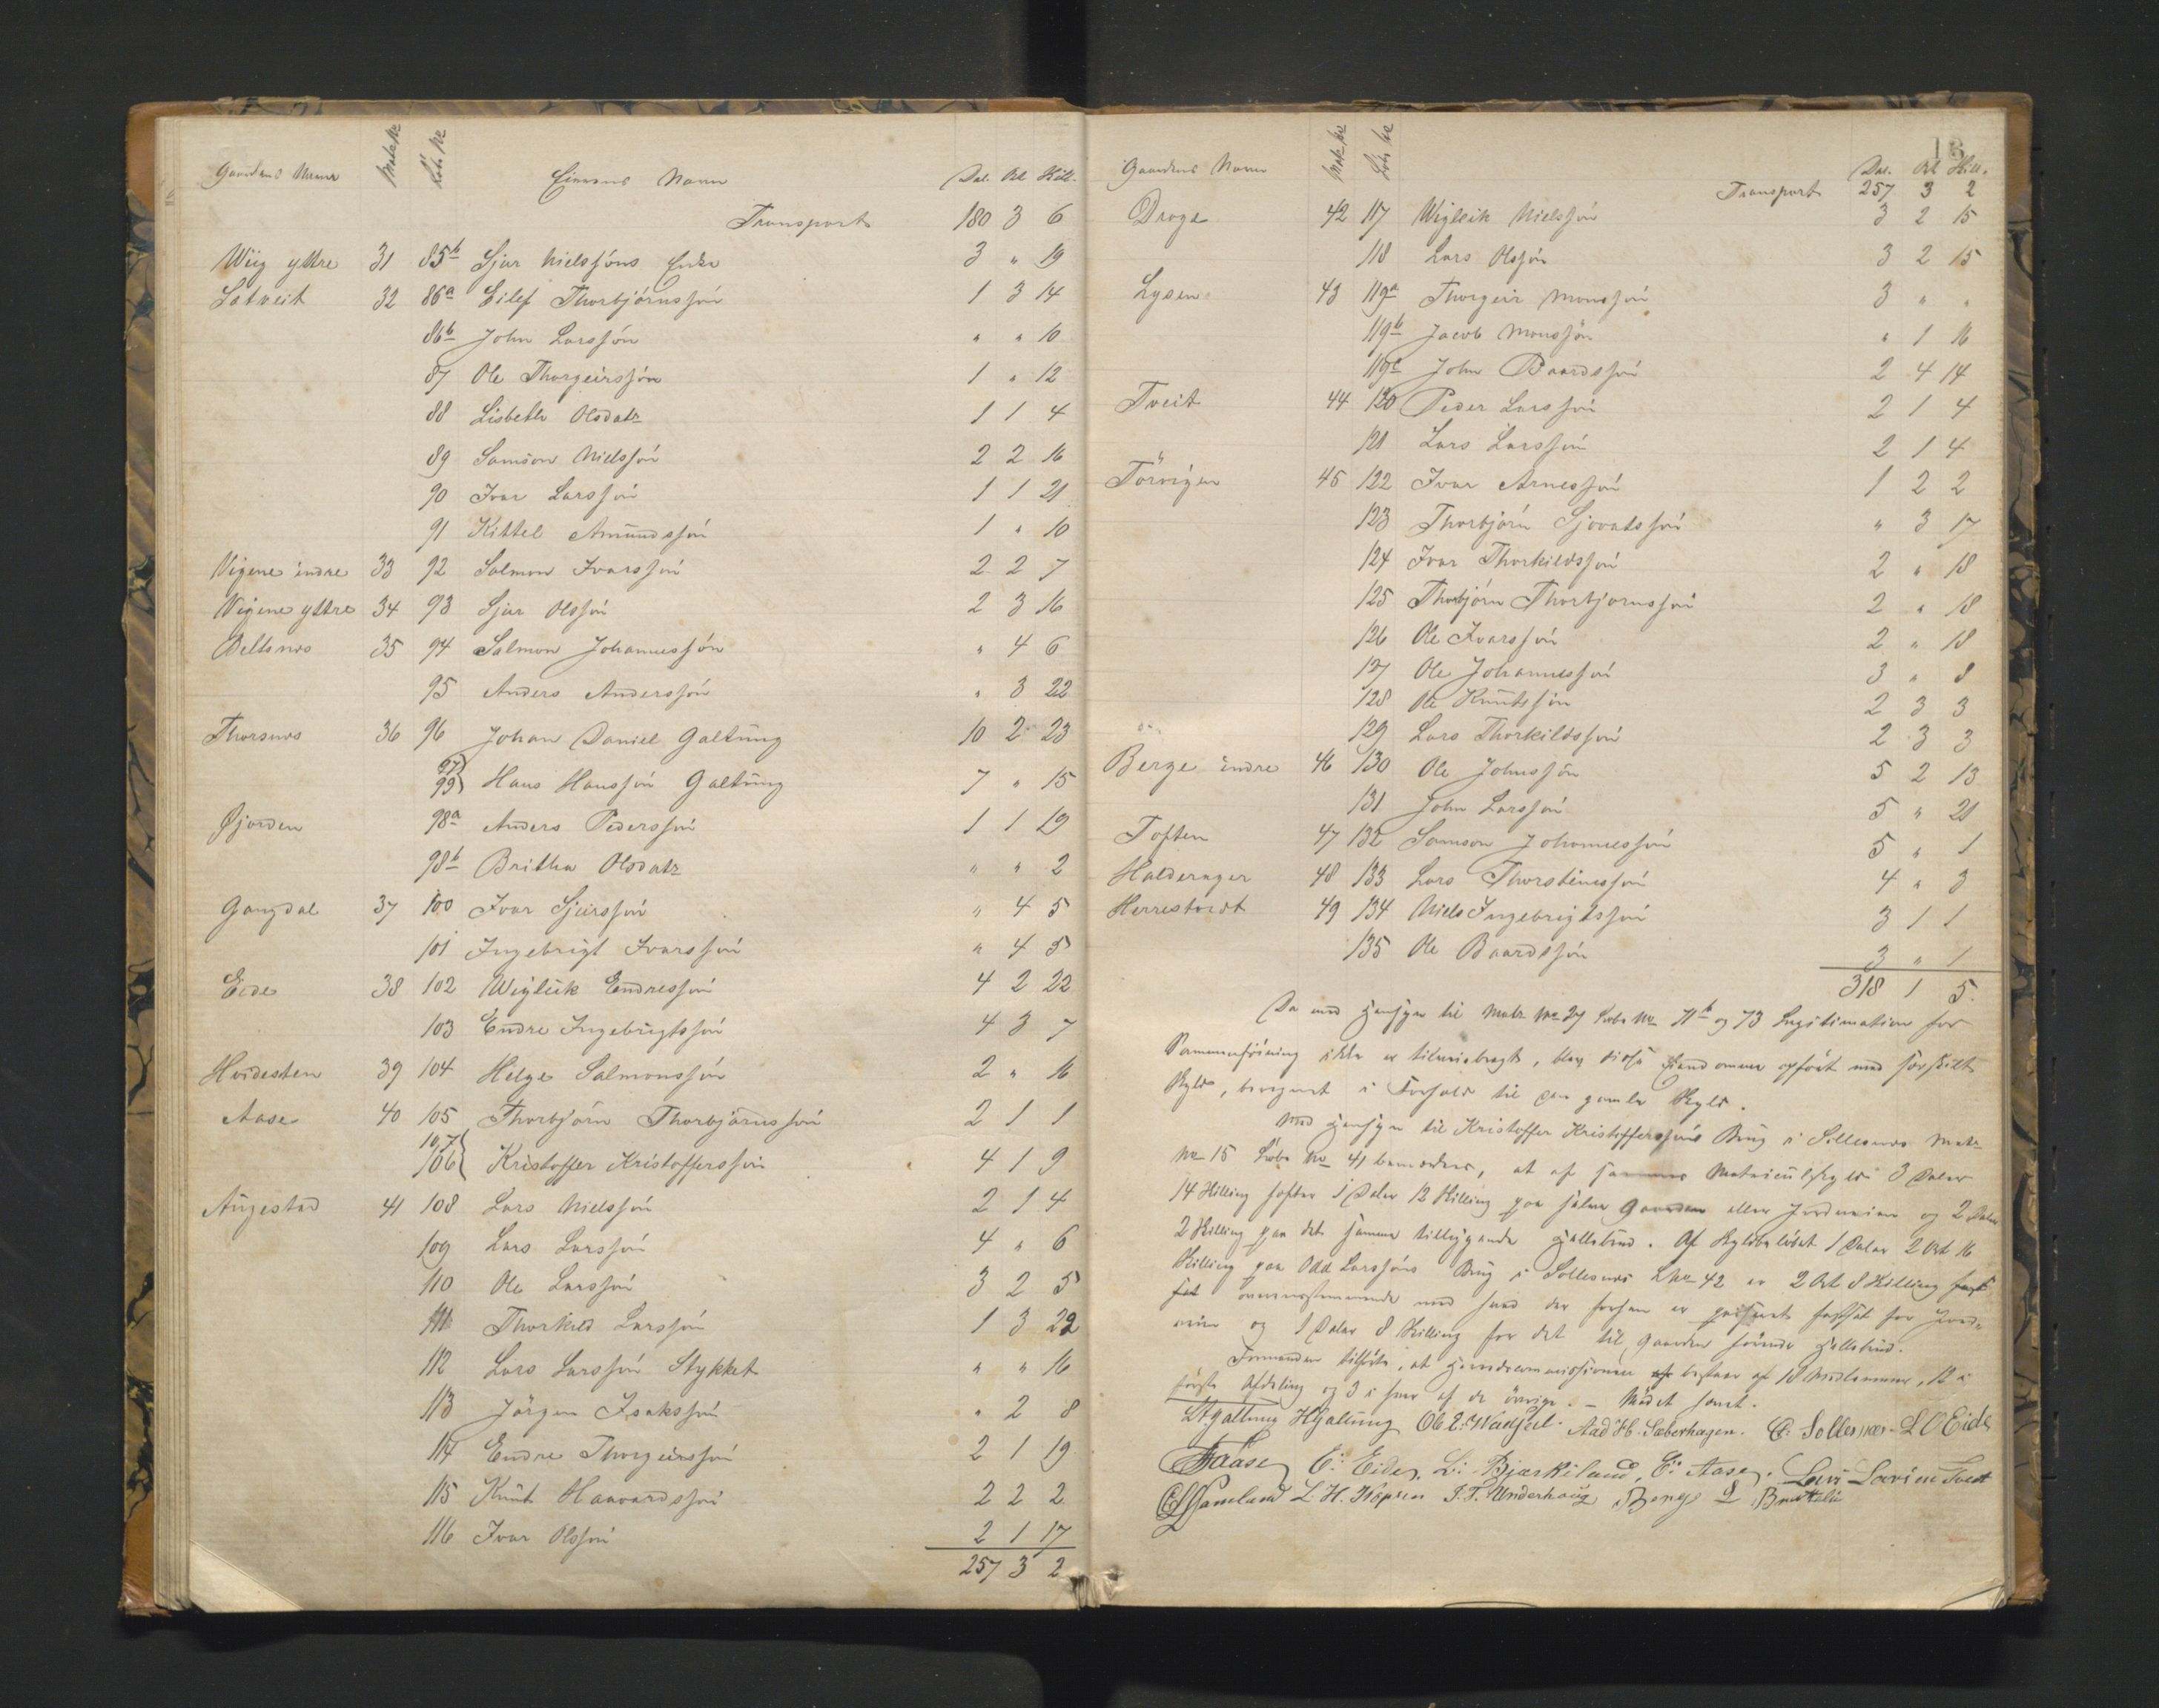 Gaardens Navn Matr No Löb. No Eierens Navn Dal. Ort Skill.
Transport 180 3 6
Wiig yttre 31 85b Sjur Nielssöns Enke 3 " 19
Sætveit 32 86a Eilef Thorbjörnssön 1 3 14
86b John Larssön " " 10
87 Ole Thorgeirssön 1 " 12
88 Lisbeth Olsdatr 1 1 4
89 Samson Nielssön 2 2 16
90 Ivar Larssön 1 1 21
91 Kittel Amundssön 1 " 10
Vigene indre 33 92 Salmon Ivarssön 2 2 7
Vigene yttre 34 93 Sjur Olssön 2 3 16
Beltsnæs 35 94 Salmon Johannessön " 4 6
95 Anders Anderssön " 3 22
Thorsnæs 36 96 Johan Daniel Galtung 10 2 23
97 99 Hans Hanssön Galtung 7 " 15
Gjorden 98a Anders Pederssön 1 1 19
98b Britha Olsdatr " " 2
Gangdal 37 100 Ivar Sjurssön " 4 5
101 Ingebrigt Ivarssön " 4 5
Eide 38 102 Wigleik Endressön 4 2 22
103 Endre Ingebrigtssön 4 3 7
Hvidesten 39 104 Helge Salmonssön 2 " 16
Aase 40 105 Thorbjörn Thorbjörnssön 2 1 1
107 106 Kristoffer Kristofferssön 4 1 9
Augestad 41 108 Lars Nielssön 2 1 4
109 Lars Larssön 4 " 6
110 Ole Larssön 3 2 5
111 Thorkild Larssön 1 3 22
112 Lars Larssön Stykket " " 16
113 Jörgen Isakssön " 2 8
114 Endre Thorgeirssön 2 1 19
115 Knut Haavardssön 2 2 2
116 Ivar Olssön 2 1 17
257 3 2
Gaardens Navn Matr No Löb No Dal. Ort Skill.
Transport 257 3 2
Droge 42 117 Wigleik Nielssön 3 2 15
118 Lars Olssön 3 2 15
Lysen 43 119a Thorgeir Monssön 3 " "
119b Jacob Monssön " 1 16
119c John Baardssön 2 4 14
Tveit 44 120 Peder Larssön 2 1 4
121 Lars Larssön 2 1 4
Törvigen 45 122 Ivar Arnessön 1 2 2
123 Thorbjörn Sjovatssön " 3 17
124 Ivar Thorkildssön 2 " 18
125 Thorbjörn Thorbjörnssön 2 " 18
126 Ole Ivarssön 2 " 18
127 Ole Johannessön 3 " 8
128 Ole Knutssön 2 3 3
129 Lars Thorkildssön 2 3 3
Berge indre 46 130 Ole Johnssön 5 2 13
131 John Larssön 5 " 21
Toften 47 132 Samson Johannessön 5 " 1
Halderager 48 133 Lars Thorsteinssön 4 " 3
Herrestvedt 49 134 Niels Ingebrigtssön 3 1 1
135 Ole Baardssön 3 " 1
318 1 5
Da med Hensyn til Matr No 27 Löbe No 71b og 73 Legitimation for
Sammenföining ikke er tilveiebragt, blev disse Eiendomme opfört med særskilt
Skyld, beregnet i Forhold til den gamle Skyld.
Med Hensyn til Kristoffer Kristofferssöns Brug i Sollesnæs Matr
No 15 Löbe No 41 bemærkes, at af sammes Matriculskyld 3 Daler
14 Skilling hefter 1 Daler 12 Skilling paa selve Gaarden eller Jordveien og 2 Daler
2 Skilling paa det samme tilliggende Hellebrud. Af Skyldbelöbet 1 Daler 2 Ort 16
Skilling paa Odd Larssöns Brug i Sollesnæs LNo 42 er 2 Ort 8 Skilling
overensstemmende med hvad der forhen er fastsat for Jord-
veien og 1 Daler 8 Skilling for det til Gaarden hörende Hellebrud.
Formanden tilföiede, at Herredscommissionen bestaar af 18 Medlemmer, 12 i
förste Afdeling og 3 i hver af de övrige. – Mödet hævet.
HGaltung Aad Hb. Sæberhagen. Sollesnæs LOEide
Aase E. Eide. L. Bjørkeland, E. Aase.
L. H. Underhaug Berge